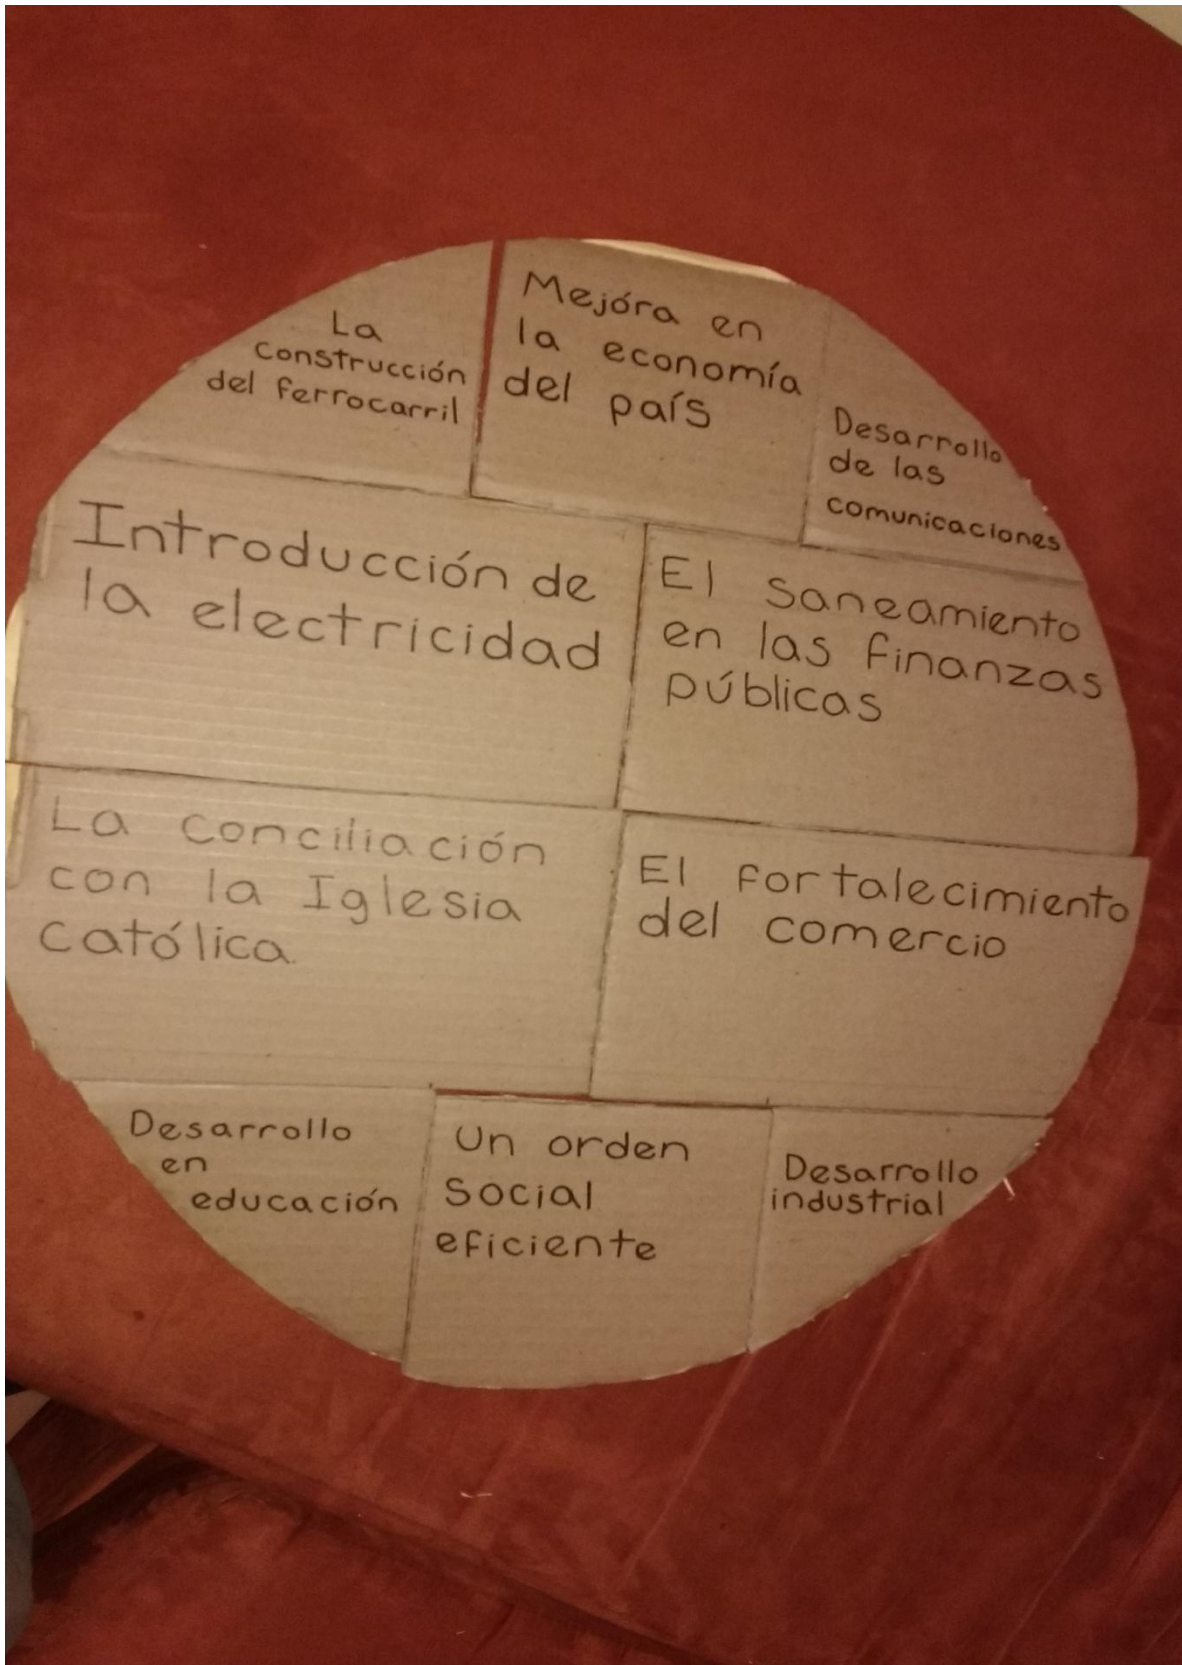 La
construcción
del ferrocarril
Mejóra en
la economía
del país
Desarrollo
de las
comunicaciones
Introducción de
la electricidad
El saneamiento
en las finanzas
públicas
La conciliación
con la Iglesia
católica.
El fortalecimiento
del comercio
Desarrollo
en
educación
Un orden
social
eficiente
Desarrollo
industrial